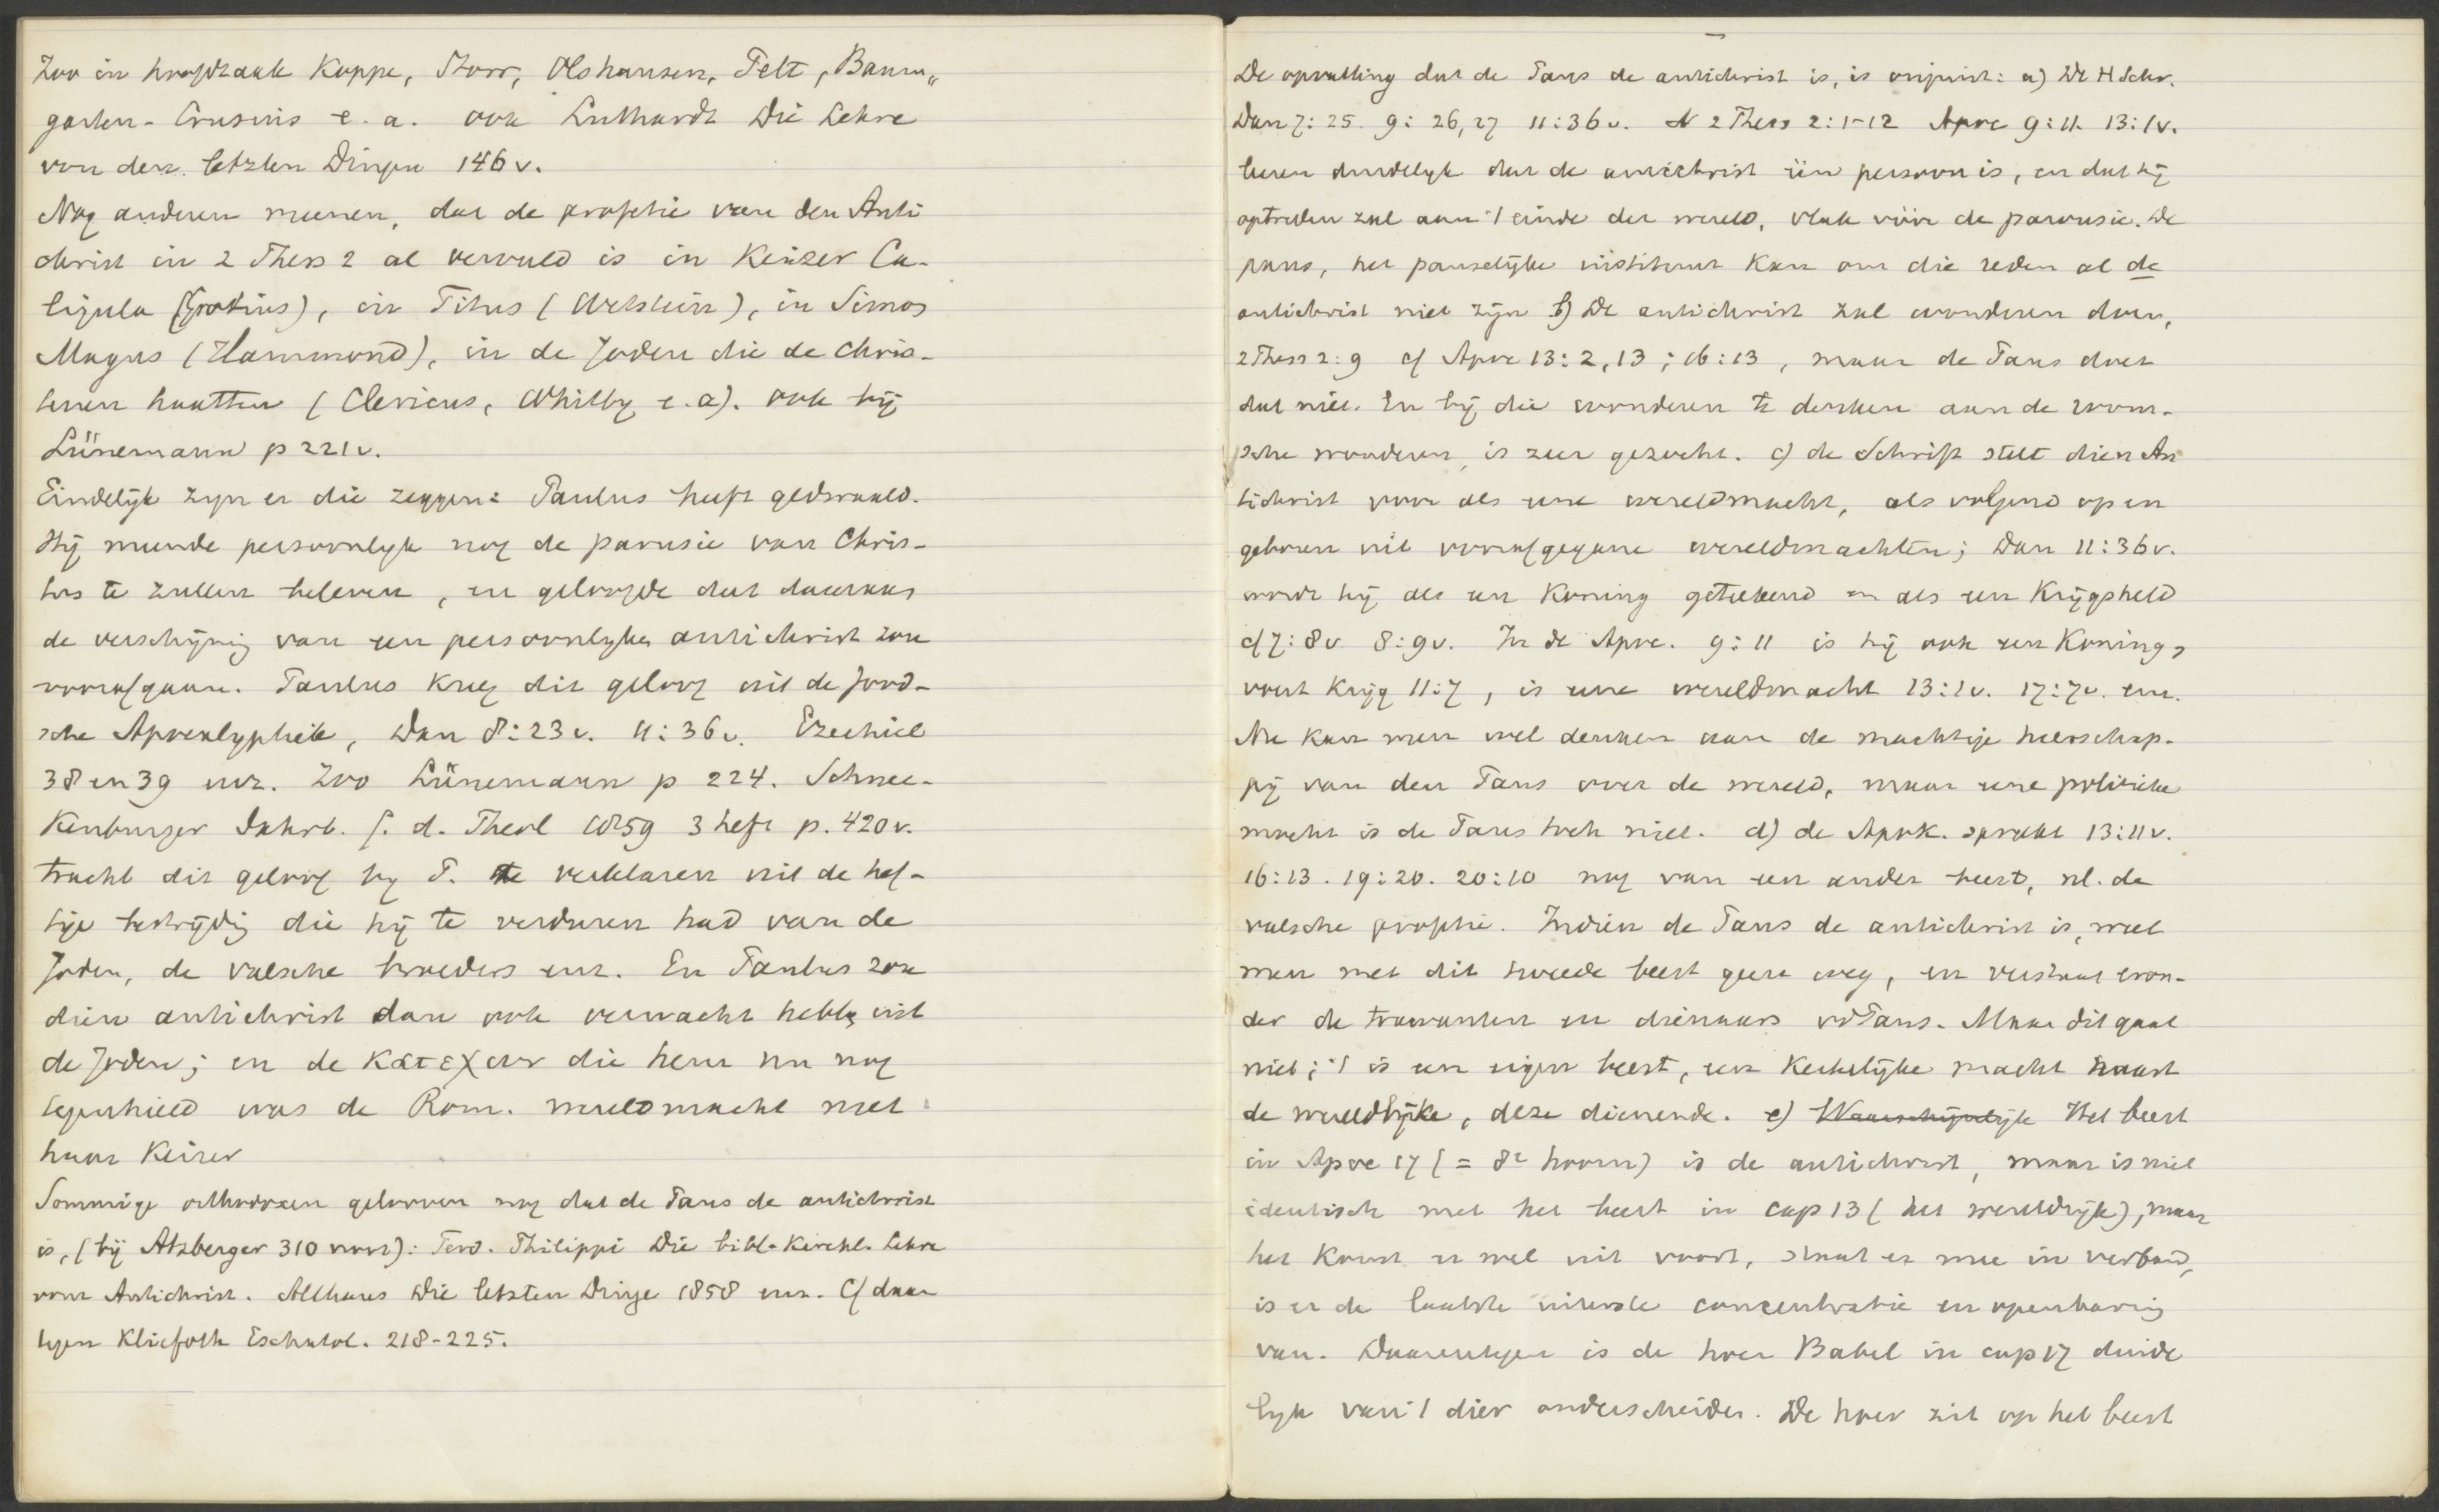 Zoo in hoofdzaak Koppe, Storr, Olshausen, Pelt, Baum„
garten-Crusius e.a. ook Luthardt Die Lehre
von den letzten Dingen 146 v.
Nog anderen meenen, dat de profetie van den Anti
christ in 2 Thess 2 al vervuld is in Keizer Ca-
ligula (Grotius), in Titus (Wetstein), in Simon
Magus (Hammond), in de Joden die de Chris-
tenen haatten (Clericus, Whitby e.a). ook bij
Lünemann p 221v.
Eindelijk zijn er die zeggen: Paulus heeft gedwaald.
Hij meende persoonlijk nog de parusie van Chris-
tus te zullen beleven, en geloofde dat daaraan
de verschijning van een persoonlyken antichrist zou
voorafgaan. Paulus kreeg dit geloof uit de Jood-
sche Apocalyphtik, Dan 8:23v. 11:36v. Ezechiel
38 en 39 enz. Zoo Lünemann p 224. Schnee-
kenburger Jahrb. f. d. Theol 1859 3 heft p. 420v.
tracht dit geloof by P. te verklaren uit de hef-
tige bestrijding die hij te verduren had van de
Joden, de valsche broeders enz. En Paulus zou
dien antichrist dan ook verwacht hebben uit
de Joden; en de κατεχων die hem nu nog
tegenhield was de Rom. wereldmacht met
haar Keizer
Sommige orthodoxen gelooven nog dat de Paus de antichrist
is, (bij Atzberger 310 noot): Ferd. Philippi Die bibl. Kirchl. Lehre
vom Antichrist. Althaus Die letzten Dinge 1858 enz. Cf daar
tegen Kliefoth Eschatol. 218-225.
De opvatting dat de Paus de antichrist is, is onjuist: a) De H Schr.
Dan 7:25. 9:26,27 11:36v. N 2 Thess 2:1-12 Apoc 9:11. 13:1v.
leeren duidelyk dat de antichrist één persoon is, en dat hij
optreden zal aan 't einde der wereld, vlak vóór de parousie. De
paus, het pauselijke instituut kan om die reden al de
antichrist niet zijn b) De antichrist zal wonderen doen,
2 Thess 2:9 cf Apoc 13:2,13; 16:13, maar de Paus doet
dat niet. En bij die wonderen te denken aan de room-
sche wonderen, is zeer gezocht. c) de Schrift stelt dien An
tichrist voor als eene wereldmacht, als volgend op en
geboren uit voorafgegane wereldmachten; Dan 11:36v.
wordt hij als een Koning geteekend en als een Krijgsheld
cf 7:8v 8:9v. In de Apoc. 9:11 is hij ook een Koning,
voert Krijg 11:7, is eene wereldmacht 13:1v. 17:7v. enz.
Nu kan men wel denken aan de machtige heerschap-
pij van den Paus over de wereld, maar eene politieke
macht is de Paus toch niet. d) de Apok. spreekt 13:11v.
16:13. 19:20. 20:10 nog van een ander beest, nl. de
valsche profeet. Indien de Paus de antichrist is, weet
men met dit tweede beest geen weg, en verstaat eron-
der de trawanten en dienaars vd Paus. Maar dit gaat
niet; 't is een eigen beest, een Kerkelijke macht naast
de wereldlijke, deze dienende. e) Waarschijnlijk Het beest
in Apoc 17 (= 8e hoorn) is de antichrist, maar is niet
identisch met het beest in cap 13 (het wereldrijk), maar
het komt er wel uit voort, staat er mee in verband,
is er de laatste uiterste concentratie en openbaring
van. Daarentegen is de hoer Babel in cap 17 duide
lyk van 't dier onderscheiden. De hoer zit op het beest